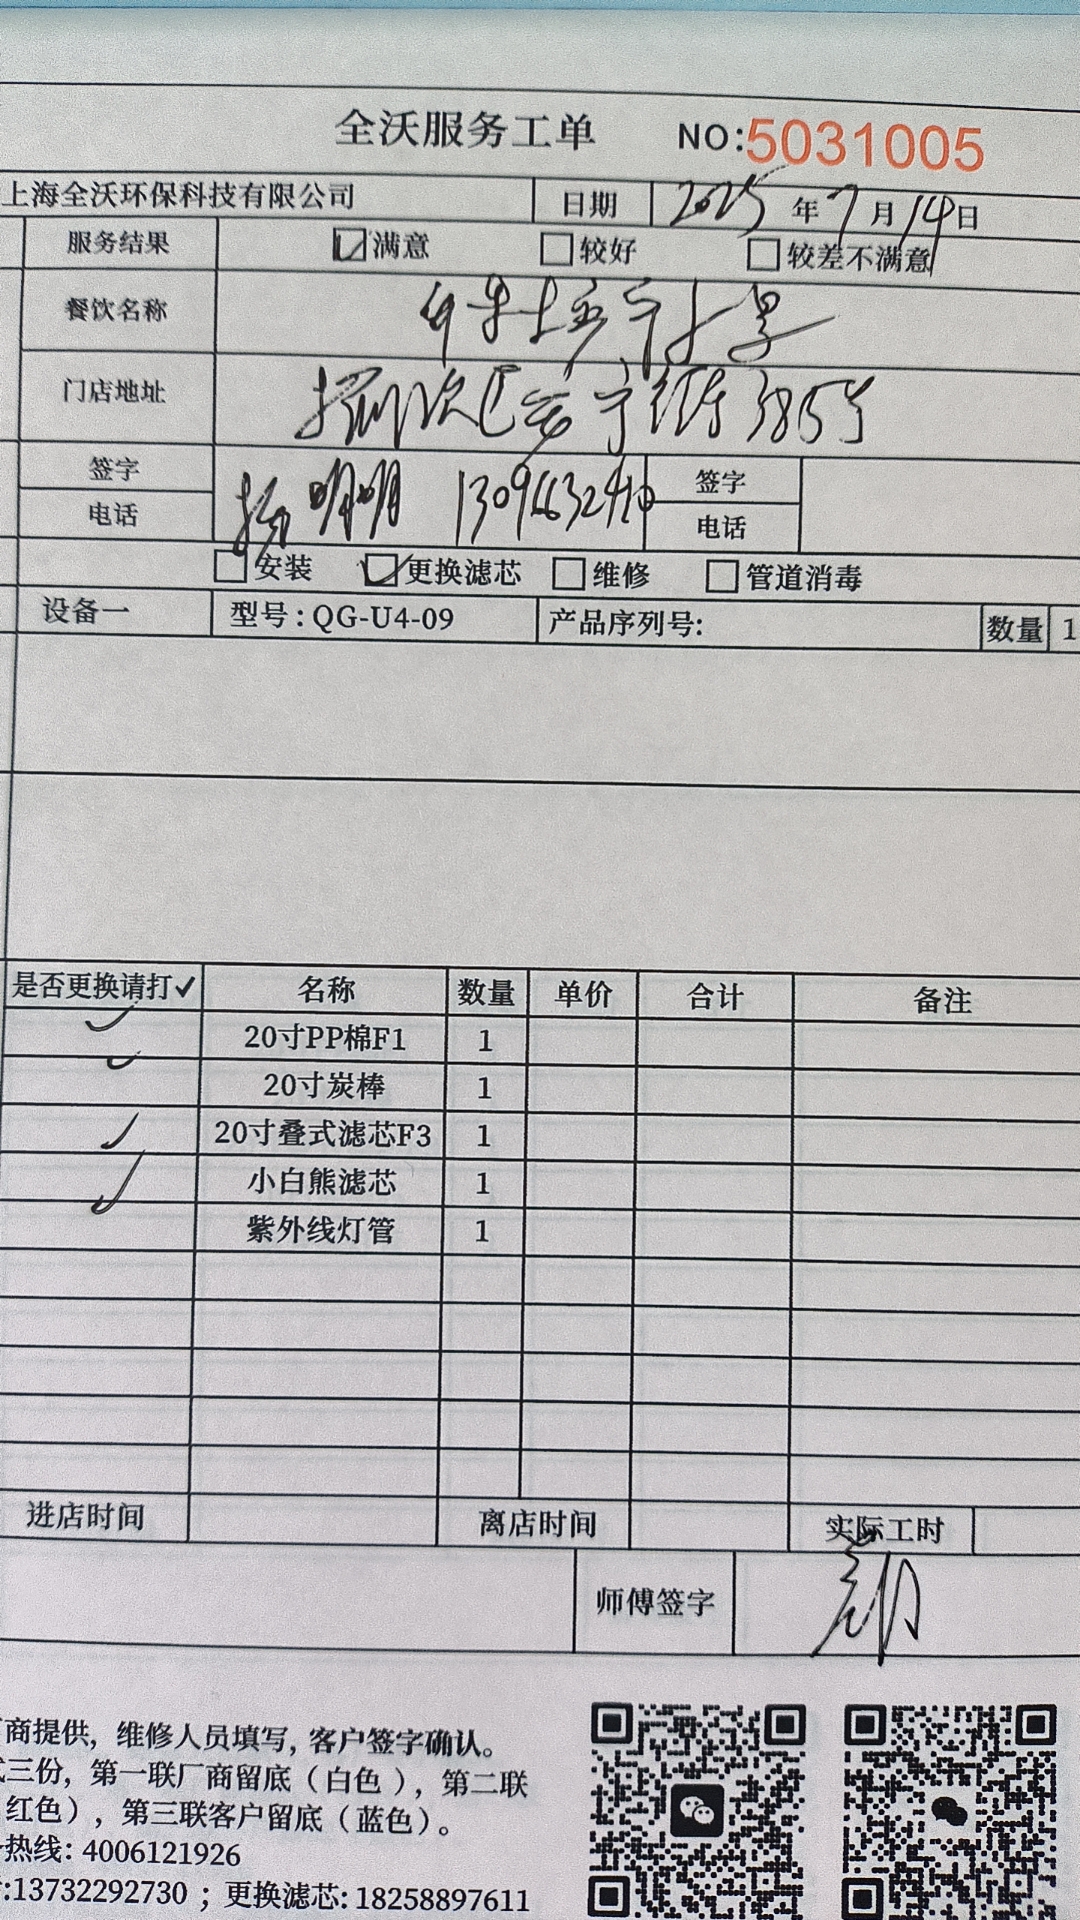 全沃服务工单 NO:5031005
上海全沃环保科技有限公司 日期 2025年7月14日
服务结果 满意 较好 较差不满意
餐饮名称
门店地址 385号
签字 明明 签字
电话 电话
安装 更换滤芯 维修 管道消毒
设备一 型号:QG-U4-09 产品序列号: 数量 1
是否更换请打✓ 名称 数量 单价 合计 备注
✓ 20寸PP棉F1 1
✓ 20寸炭棒 1
✓ 20寸叠式滤芯F3 1
✓ 小白熊滤芯 1
紫外线灯管 1
进店时间 离店时间 实际工时
师傅签字
商提供，维修人员填写，客户签字确认。
三份，第一联厂商留底（白色），第二联
红色），第三联客户留底（蓝色）。
热线: 4006121926
:13732292730；更换滤芯: 18258897611